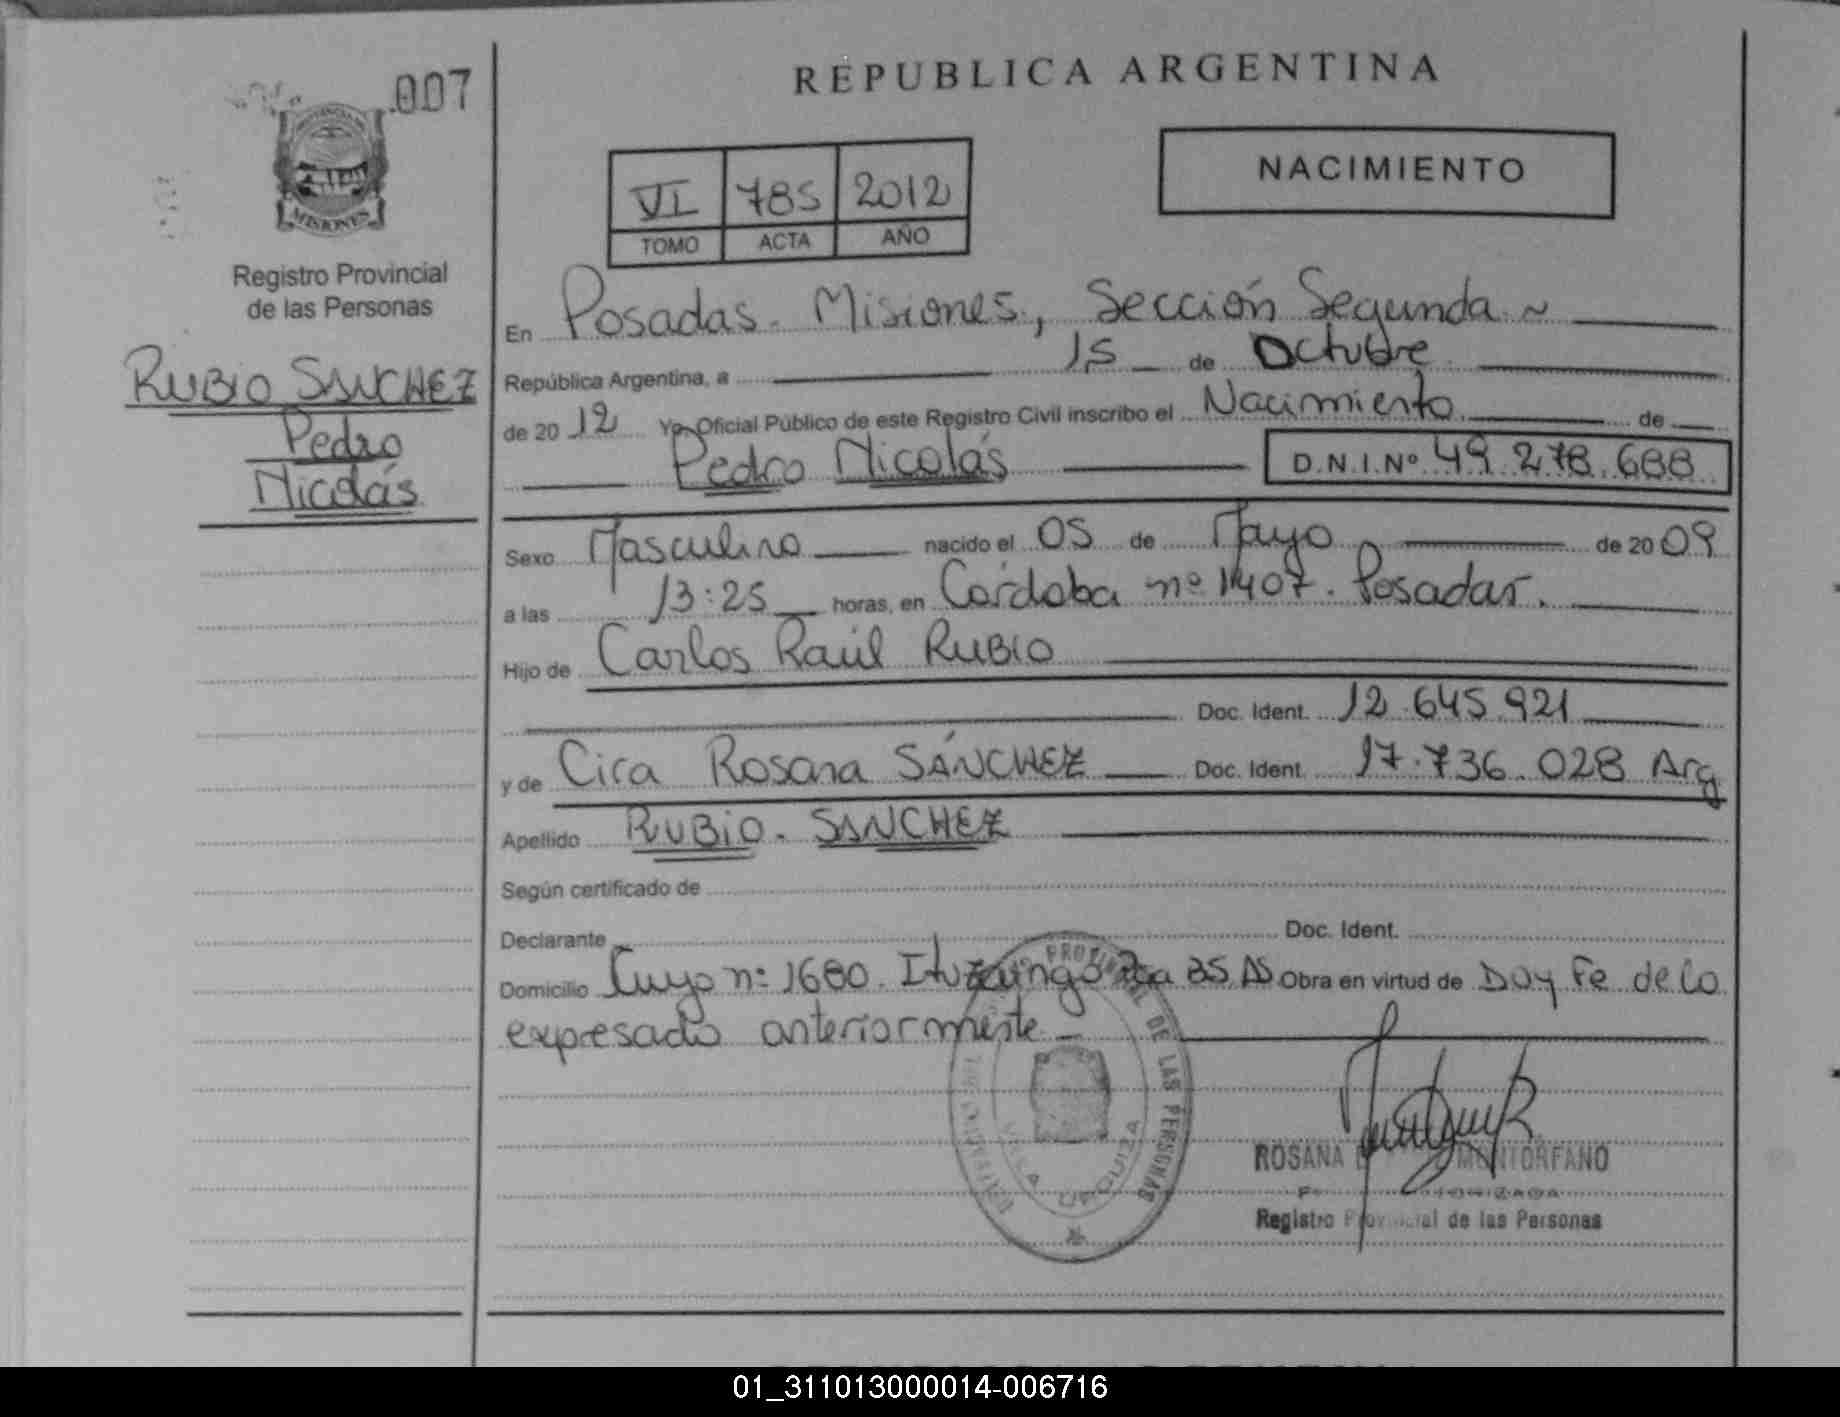 007
PROVINCIA DE
MISIONES
Registro Provincial
de las Personas
RUBIO SANCHEZ
Pedro
Nicolás
REPUBLICA ARGENTINA
VI 785 2012
TOMO ACTA AÑO
NACIMIENTO
En Posadas. Misiones, Sección Segunda ~
República Argentina, a 15 de Octubre
de 20 12 Yo, Oficial Público de este Registro Civil inscribo el Nacimiento de
Pedro Nicolás D.N.I.Nº 49.278.688
Sexo Masculino nacido el 05 de Mayo de 20 09
a las 13:25 horas, en Córdoba nº 1407. Posadas.
Hijo de Carlos Raúl RUBIO
Doc. Ident. 12.645.921
y de Cira Rosana SÁNCHEZ Doc. Ident. 17.736.028 Arg
Apellido RUBIO. SANCHEZ
Según certificado de
Declarante Doc. Ident.
Domicilio Cuyo nº 1680. Ituzaingó Bs As Obra en virtud de Doy Fe de lo
expresado anteriormente
PROVINCIAL DE LAS PERSONAS
VILLA URQUIZA
ROSANA MONTORFANO
Registro Provincial de las Personas
01_311013000014-006716